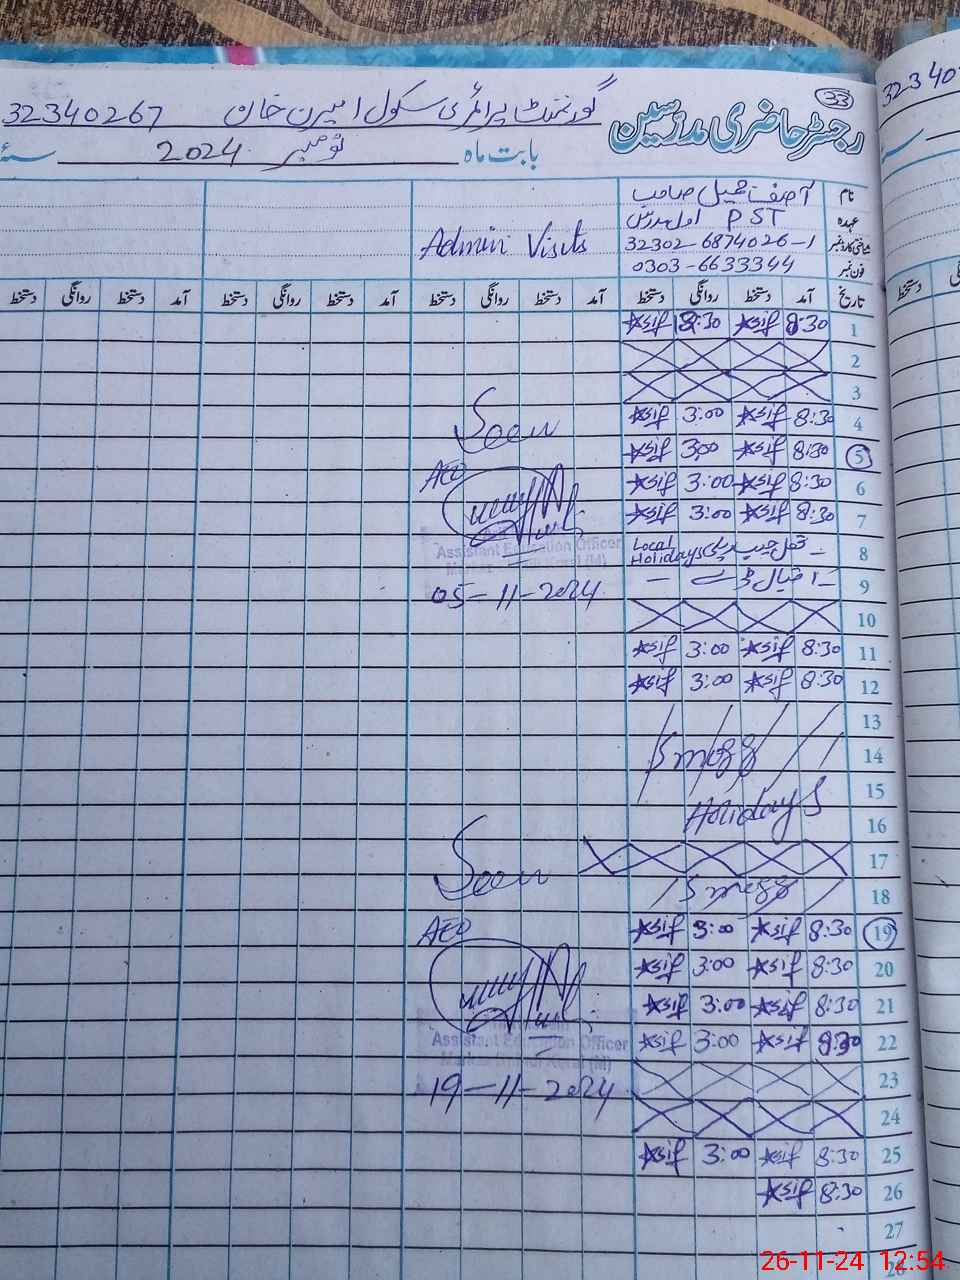 33
رجسٹر حاضری مدرسین
گورنمنٹ پرائمری سکول امیرن خان 32340267
بابت ماہ نومبر 2024 سنہ
نام آصف جمیل صاحب
عہدہ PST اول مدرس
شناختی کارڈ نمبر 32302-6874026-1
فون نمبر 0303-6633344
Admin Visits
تاریخ آمد دستخط روانگی دستخط آمد دستخط روانگی دستخط آمد دستخط روانگی دستخط آمد دستخط روانگی دستخط
1 8:30 Asif :30 Asif
2
3
4 8:30 Asif 3:00 Asif
Seen
5 8:30 Asif 3:00 Asif
AEO
6 8:30 Asif 3:00 Asif
7 8:30 Asif 3:00 Asif
8 Local Holidays
Assistant Education Officer
9
05-11-2024
10
11 8:30 Asif 3:00 Asif
12 8:30 Asif 3:00 Asif
13
14 Smogg
15
16 Holidays
17
Seen
18 Smogg
19 8:30 Asif 3:00 Asif
AEO
20 8:30 Asif 3:00 Asif
21 8:30 Asif 3:00 Asif
22 8:30 Asif 3:00 Asif
Assistant Education Officer
23
19-11-2024
24
25 8:30 Asif 3:00 Asif
26 8:30 Asif
27
28
26-11-24 12:54
32340